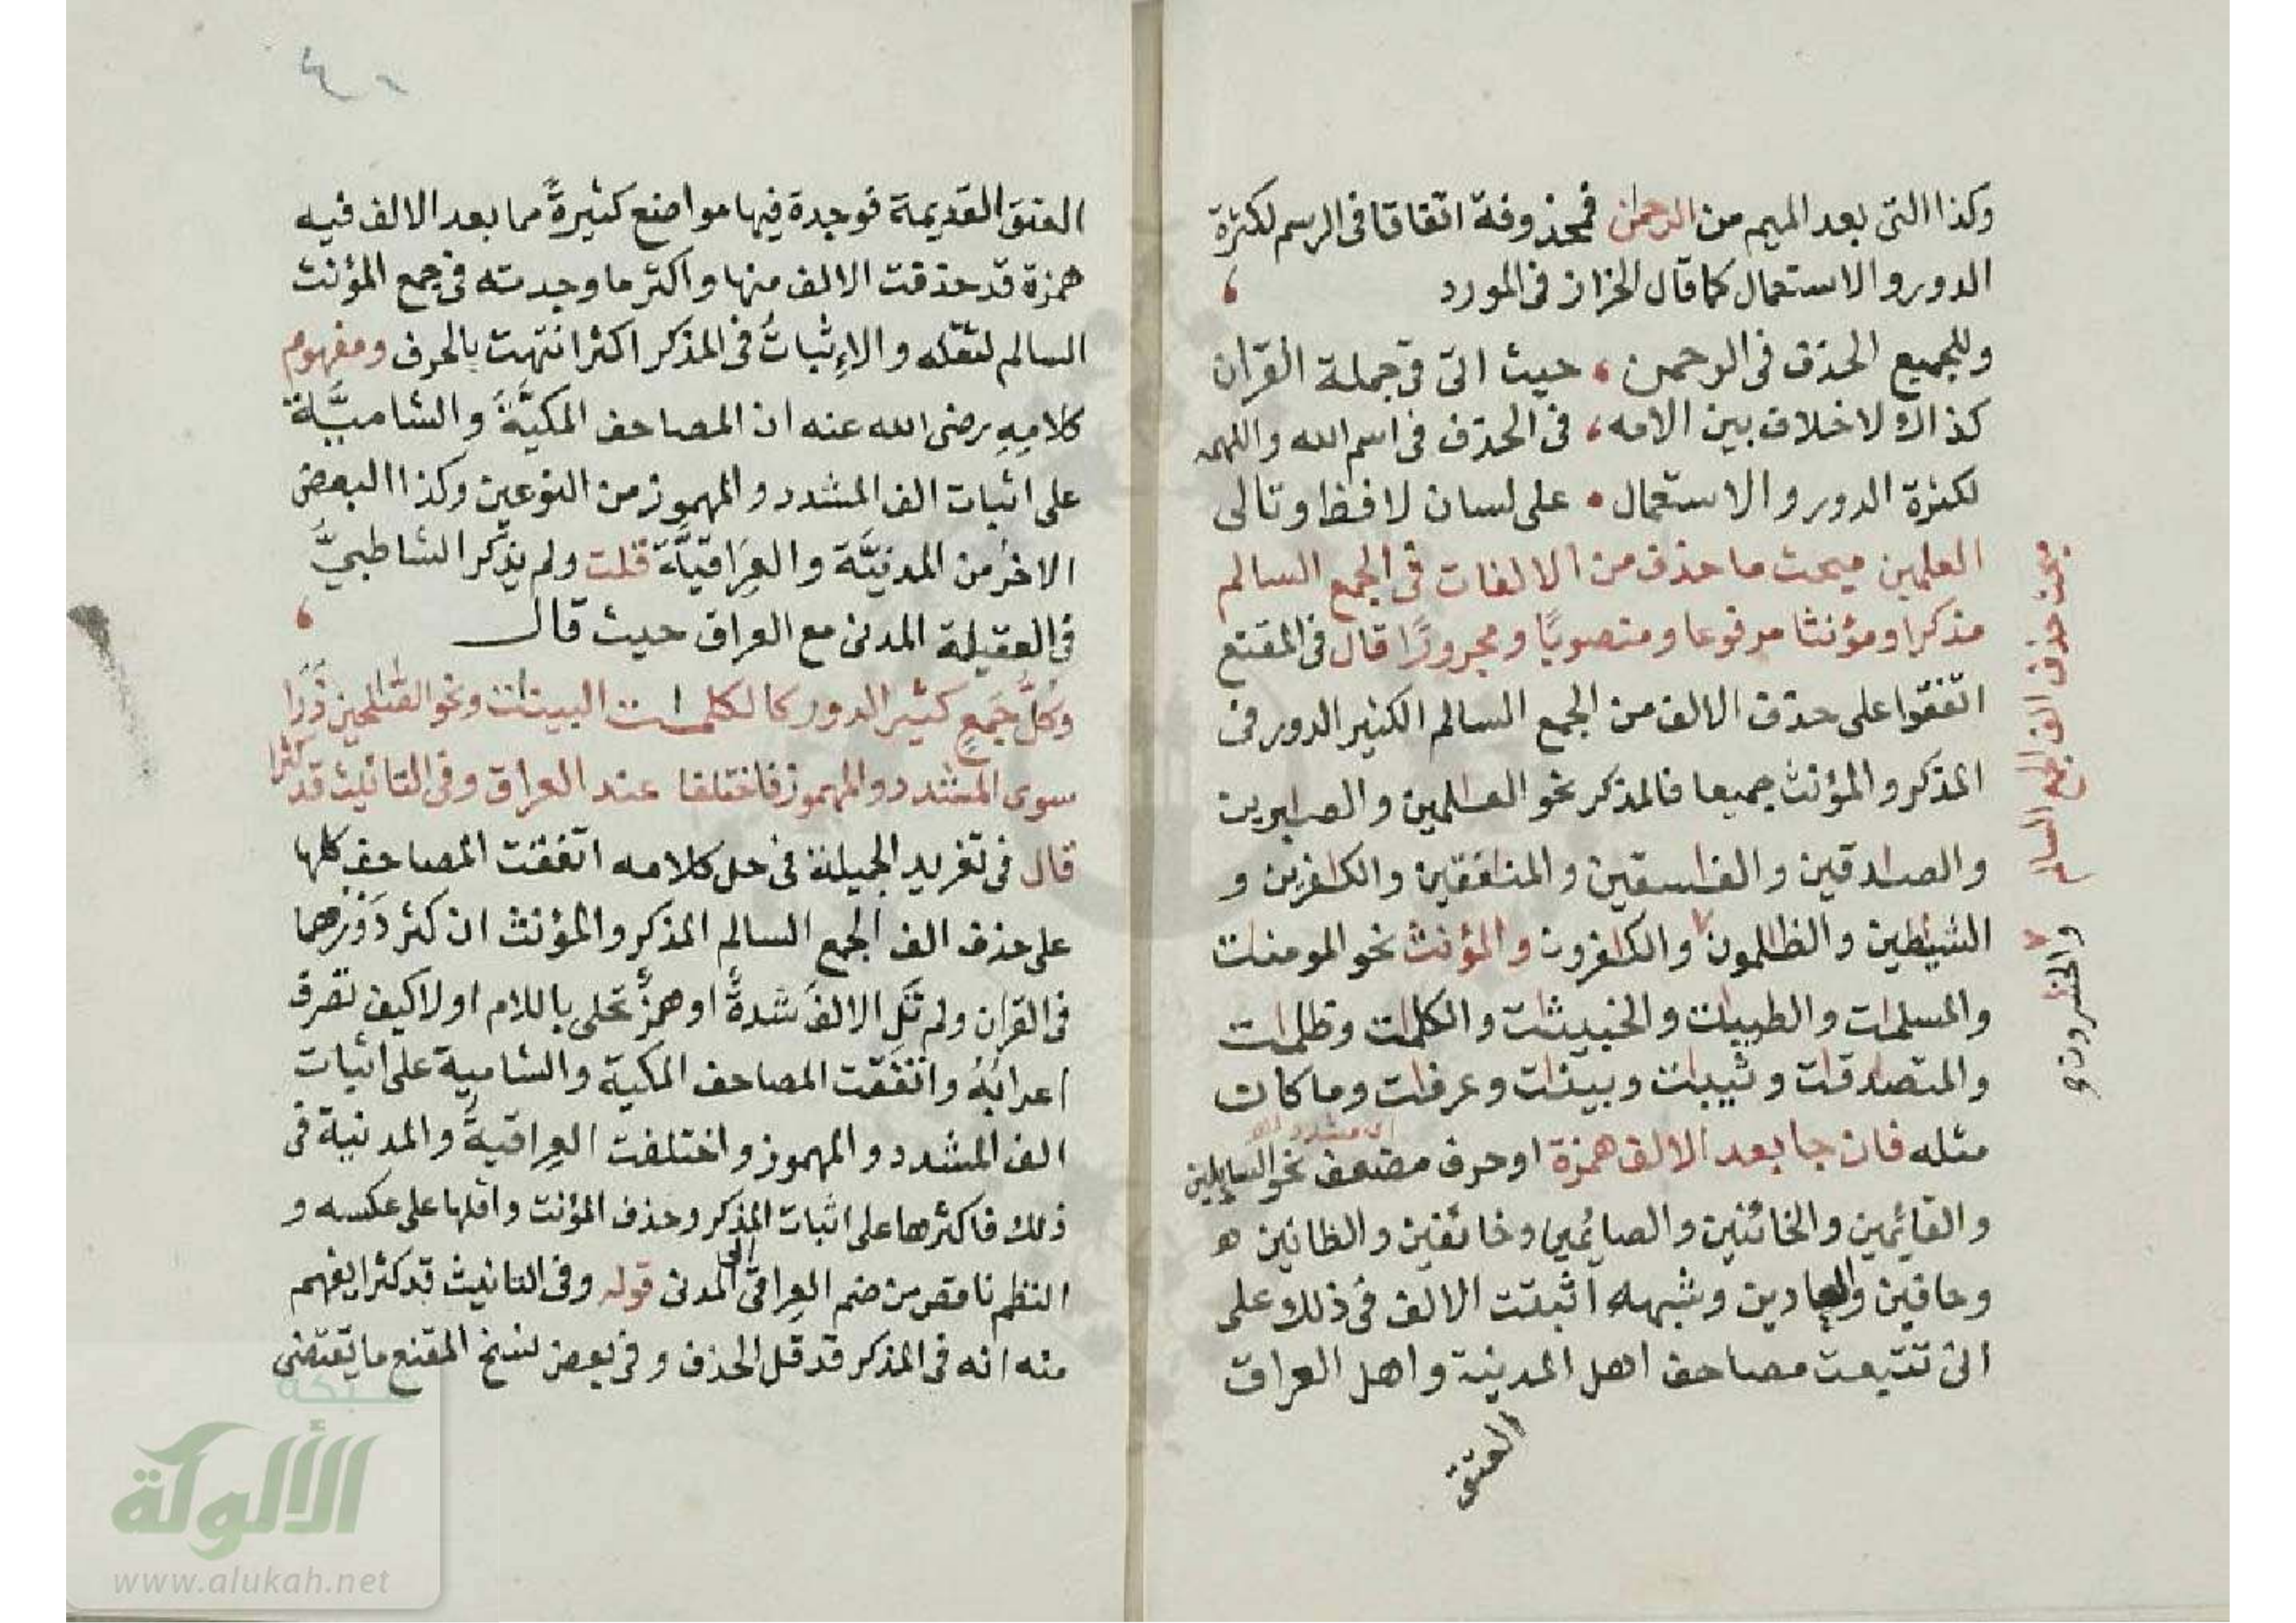 وكذا التى بعد الميم من الرحمن فمحذوفة اتفاقا فى الرسم لكثرة
الدور والاستعمال كما قال الخراز فى المورد
وللجميع الحذف فى الرحمن ، حيث اتى فى جملة القران
كذاك لا خلاف بين الامه ، فى الحذف فى اسم الله واللهمه
لكثرة الدور والاستعمال • على لسان لافظ وتالى
العلمين مبحث ما حذف من الالفات فى الجمع السالم
مذكرا ومؤنثا مرفوعا ومنصوبًا ومجرورًا قال فى المقنع
اتفقوا على حذف الالف من الجمع السالم الكثير الدور فى
المذكر والمؤنث جميعا فالمذكر نحو العلمين والصبرين
والصدقين والفسقين والمنفقين والكفرين و
الشيطين والظلمون والكفرون والمؤنث نحو المومنت
والمسلمت والطيبت والخبيثت والكلمت وظلمت
والمتصدقت وثيبت وبينت وغرفت وما كان
مثله فان جا بعد الالف همزة او حرف مضعف نحو السايلين
اى مشدد
والقائمين والخائنين والصايمين وخائفين والظانين
وحافين والعادين وشبهه اثبتت الالف فى ذلك على
انى تتبعت مصاحف اهل المدينة واهل العراق
العتق
مبحث حذف الف الجمع السالم
والخسرون
العتق القديمة فوجدة فيها مواضع كثيرةً مما بعد الالف فيه
همزة قد حذفت الالف منها واكثر ما وجدته فى جمع المؤنث
السالم لثقله والاِثباتُ فى المذكر اكثر انتهت بالحرف ومفهوم
كلامِهِ رضى الله عنه ان المصاحف المكيَّةَ والشاميَّة
على اثبات الف المشدد والمهموز من النوعين وكذا البعض
الاخر من المدنيَّة والعِرَاقيَّة قلت ولم يذكر الشاطبيَّ
فى العقيلة المدنى مع العراق حيث قال
وكلُّ جَمعٍ كثير الدور كالكلمات البينات ونحو الصلحين ذَرَا
سوى المشدد والمهموز فاختلفا عند العراق وفى التانيث قد كثرا
قال فى تغريد الجميلة فى حل كلامه اتفقت المصاحف كلها
على حذف الف الجمع السالم المذكر والمؤنث ان كثر دَورهما
فى القران ولم تَلِ الالفَ شدةٌ او همزٌ تحلى باللام او لا كيف تصرف
اعرابُهُ واتفقت المصاحف المكية والشامية على اثبات
الف المشدد والمهموز واختلفت العِراقيةَ والمدنية فى
ذلك فاكثرها على اثبات المذكر وحذف المؤنث واقلها على عكسه و
النظم ناقص من ضم العِراقى الى المدنى قوله وفى التانيث قد كثرا يفهم
منه انه فى المذكر قد قل الحذف وفى بعض نسخ المقنع ما يقتضى
شبكة
الألوكة
www.alukah.net